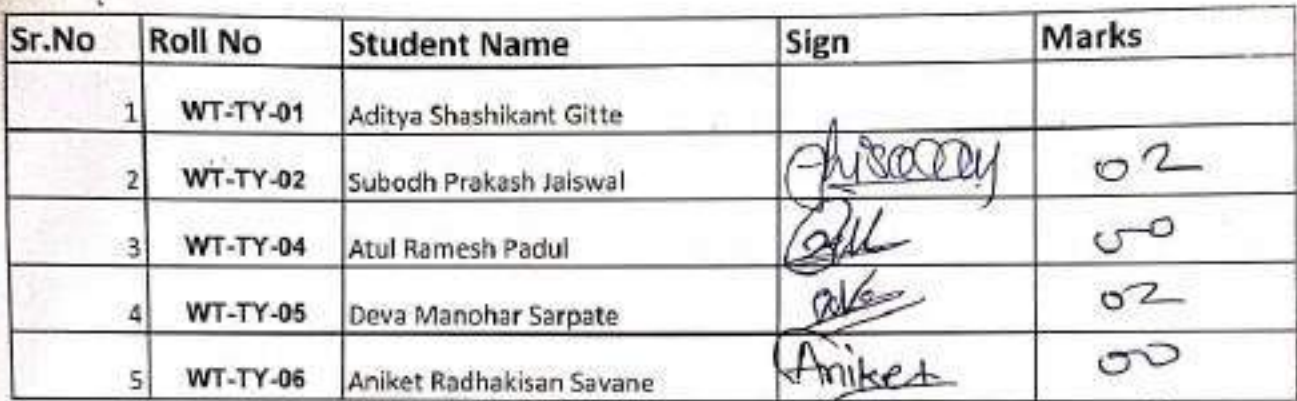 Sr.No Roll No Student Name Sign Marks
1 WT-TY-01 Aditya Shashikant Gitte
2 WT-TY-02 Subodh Prakash Jaiswal 02
3 WT-TY-04 Atul Ramesh Padul
4 WT-TY-05 Deva Manohar Sarpate 02
5 WT-TY-06 Aniket Radhakisan Savane Aniket 00